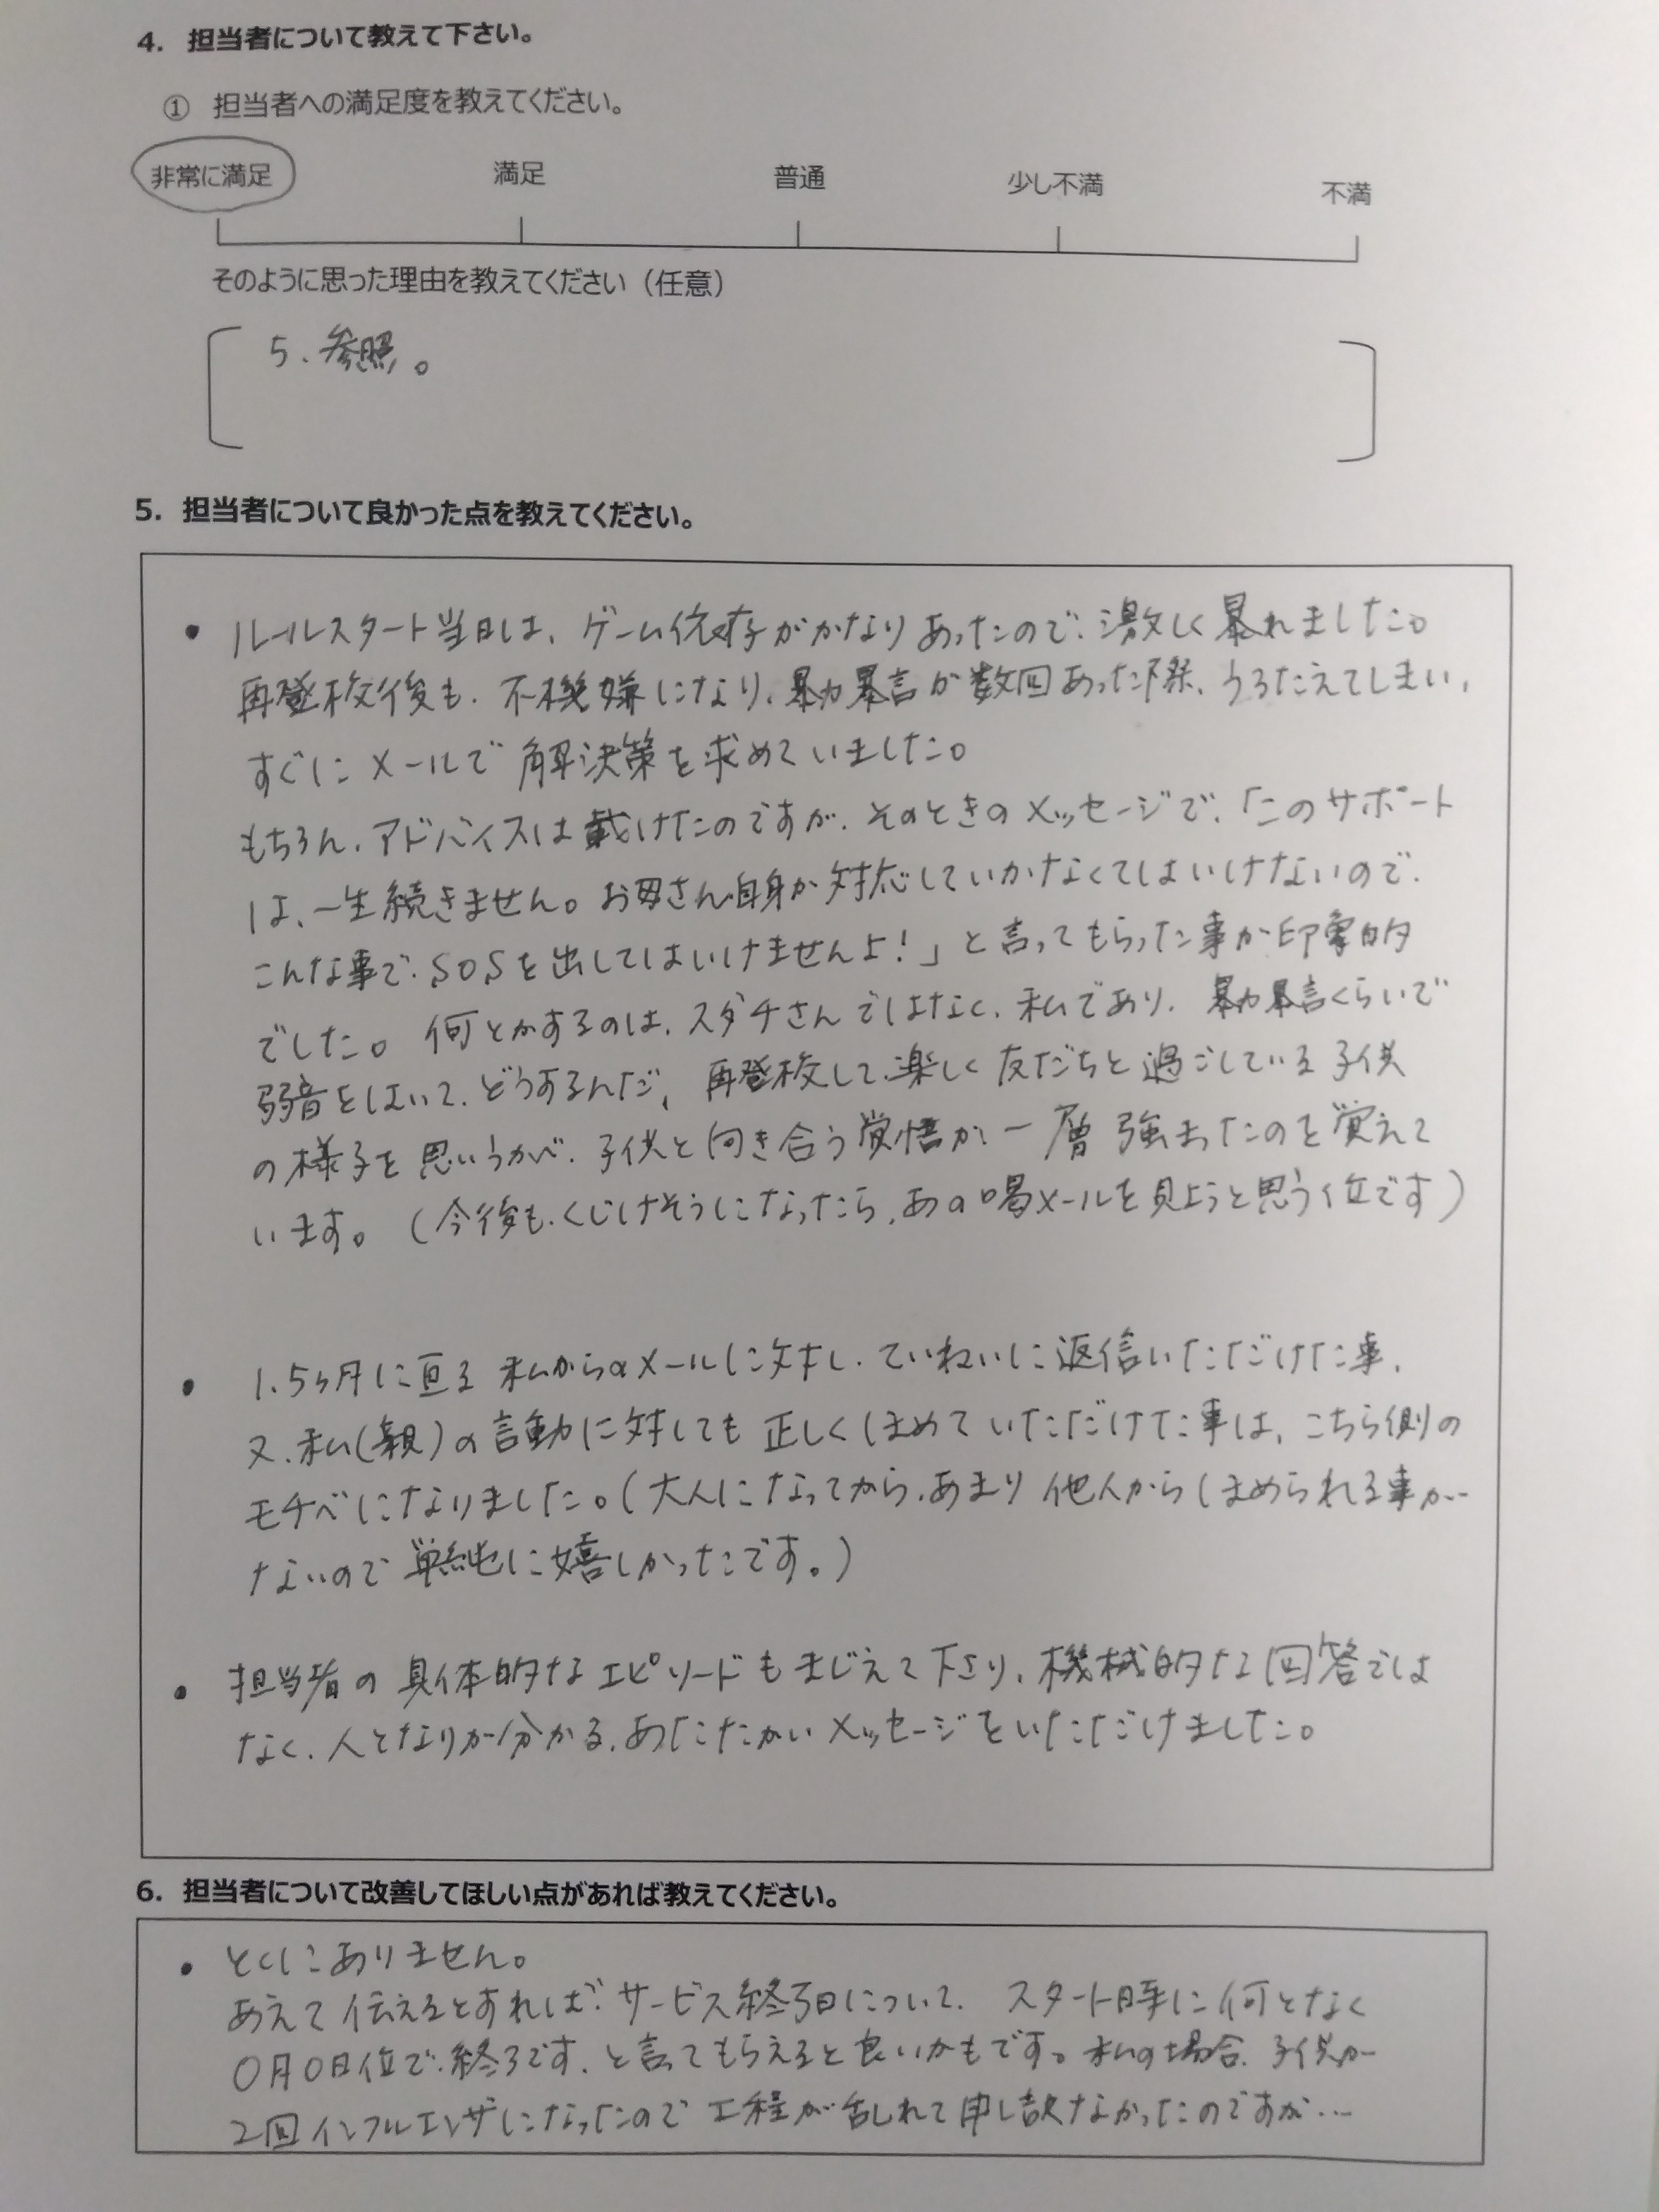 4. 担当者について教えて下さい。
① 担当者への満足度を教えてください。
非常に満足 満足 普通 少し不満 不満
そのように思った理由を教えてください（任意）
5. 参照。
5. 担当者について良かった点を教えてください。
• ルールスタート当日は、ゲーム依存がかなりあったので、激しく暴れました。
再登校後も、不機嫌になり、暴力暴言が数回あった際、うろたえてしまい、
すぐにメールで解決策を求めていました。
もちろん、アドバイスは戴けたのですが、そのときのメッセージで、「このサポート
は、一生続きません。お母さん自身が対応していかなくてはいけないので、
こんな事で、SOSを出してはいけませんよ！」と言ってもらった事が印象的
でした。何とかするのは、スダチさんではなく、私であり、暴力暴言くらいで
弱音をはいて、どうするんだ、再登校して、楽しく友だちと過ごしている子供
の様子を思いうかべ、子供と向き合う覚悟が、一層強まったのを覚えて
います。（今後も、くじけそうになったら、あの喝メールを見ようと思う位です）
• 1.5ヶ月に亘る私からのメールに対し、ていねいに返信いただけた事、
又、私（親）の言動に対しても正しくほめていただけた事は、こちら側の
モチベになりました。（大人になってから、あまり他人からほめられる事が
ないので単純に嬉しかったです。）
• 担当者の具体的なエピソードもまじえて下さり、機械的な回答では
なく、人となりが分かる、あたたかいメッセージをいただけました。
6. 担当者について改善してほしい点があれば教えてください。
• とくにありません。
あえて伝えるとすれば、サービス終了日について、スタート時に何となく
〇月〇日位で、終了です、と言ってもらえると良いかもです。私の場合、子供が
2回インフルエンザになったので工程が乱れて申し訳なかったのですが…